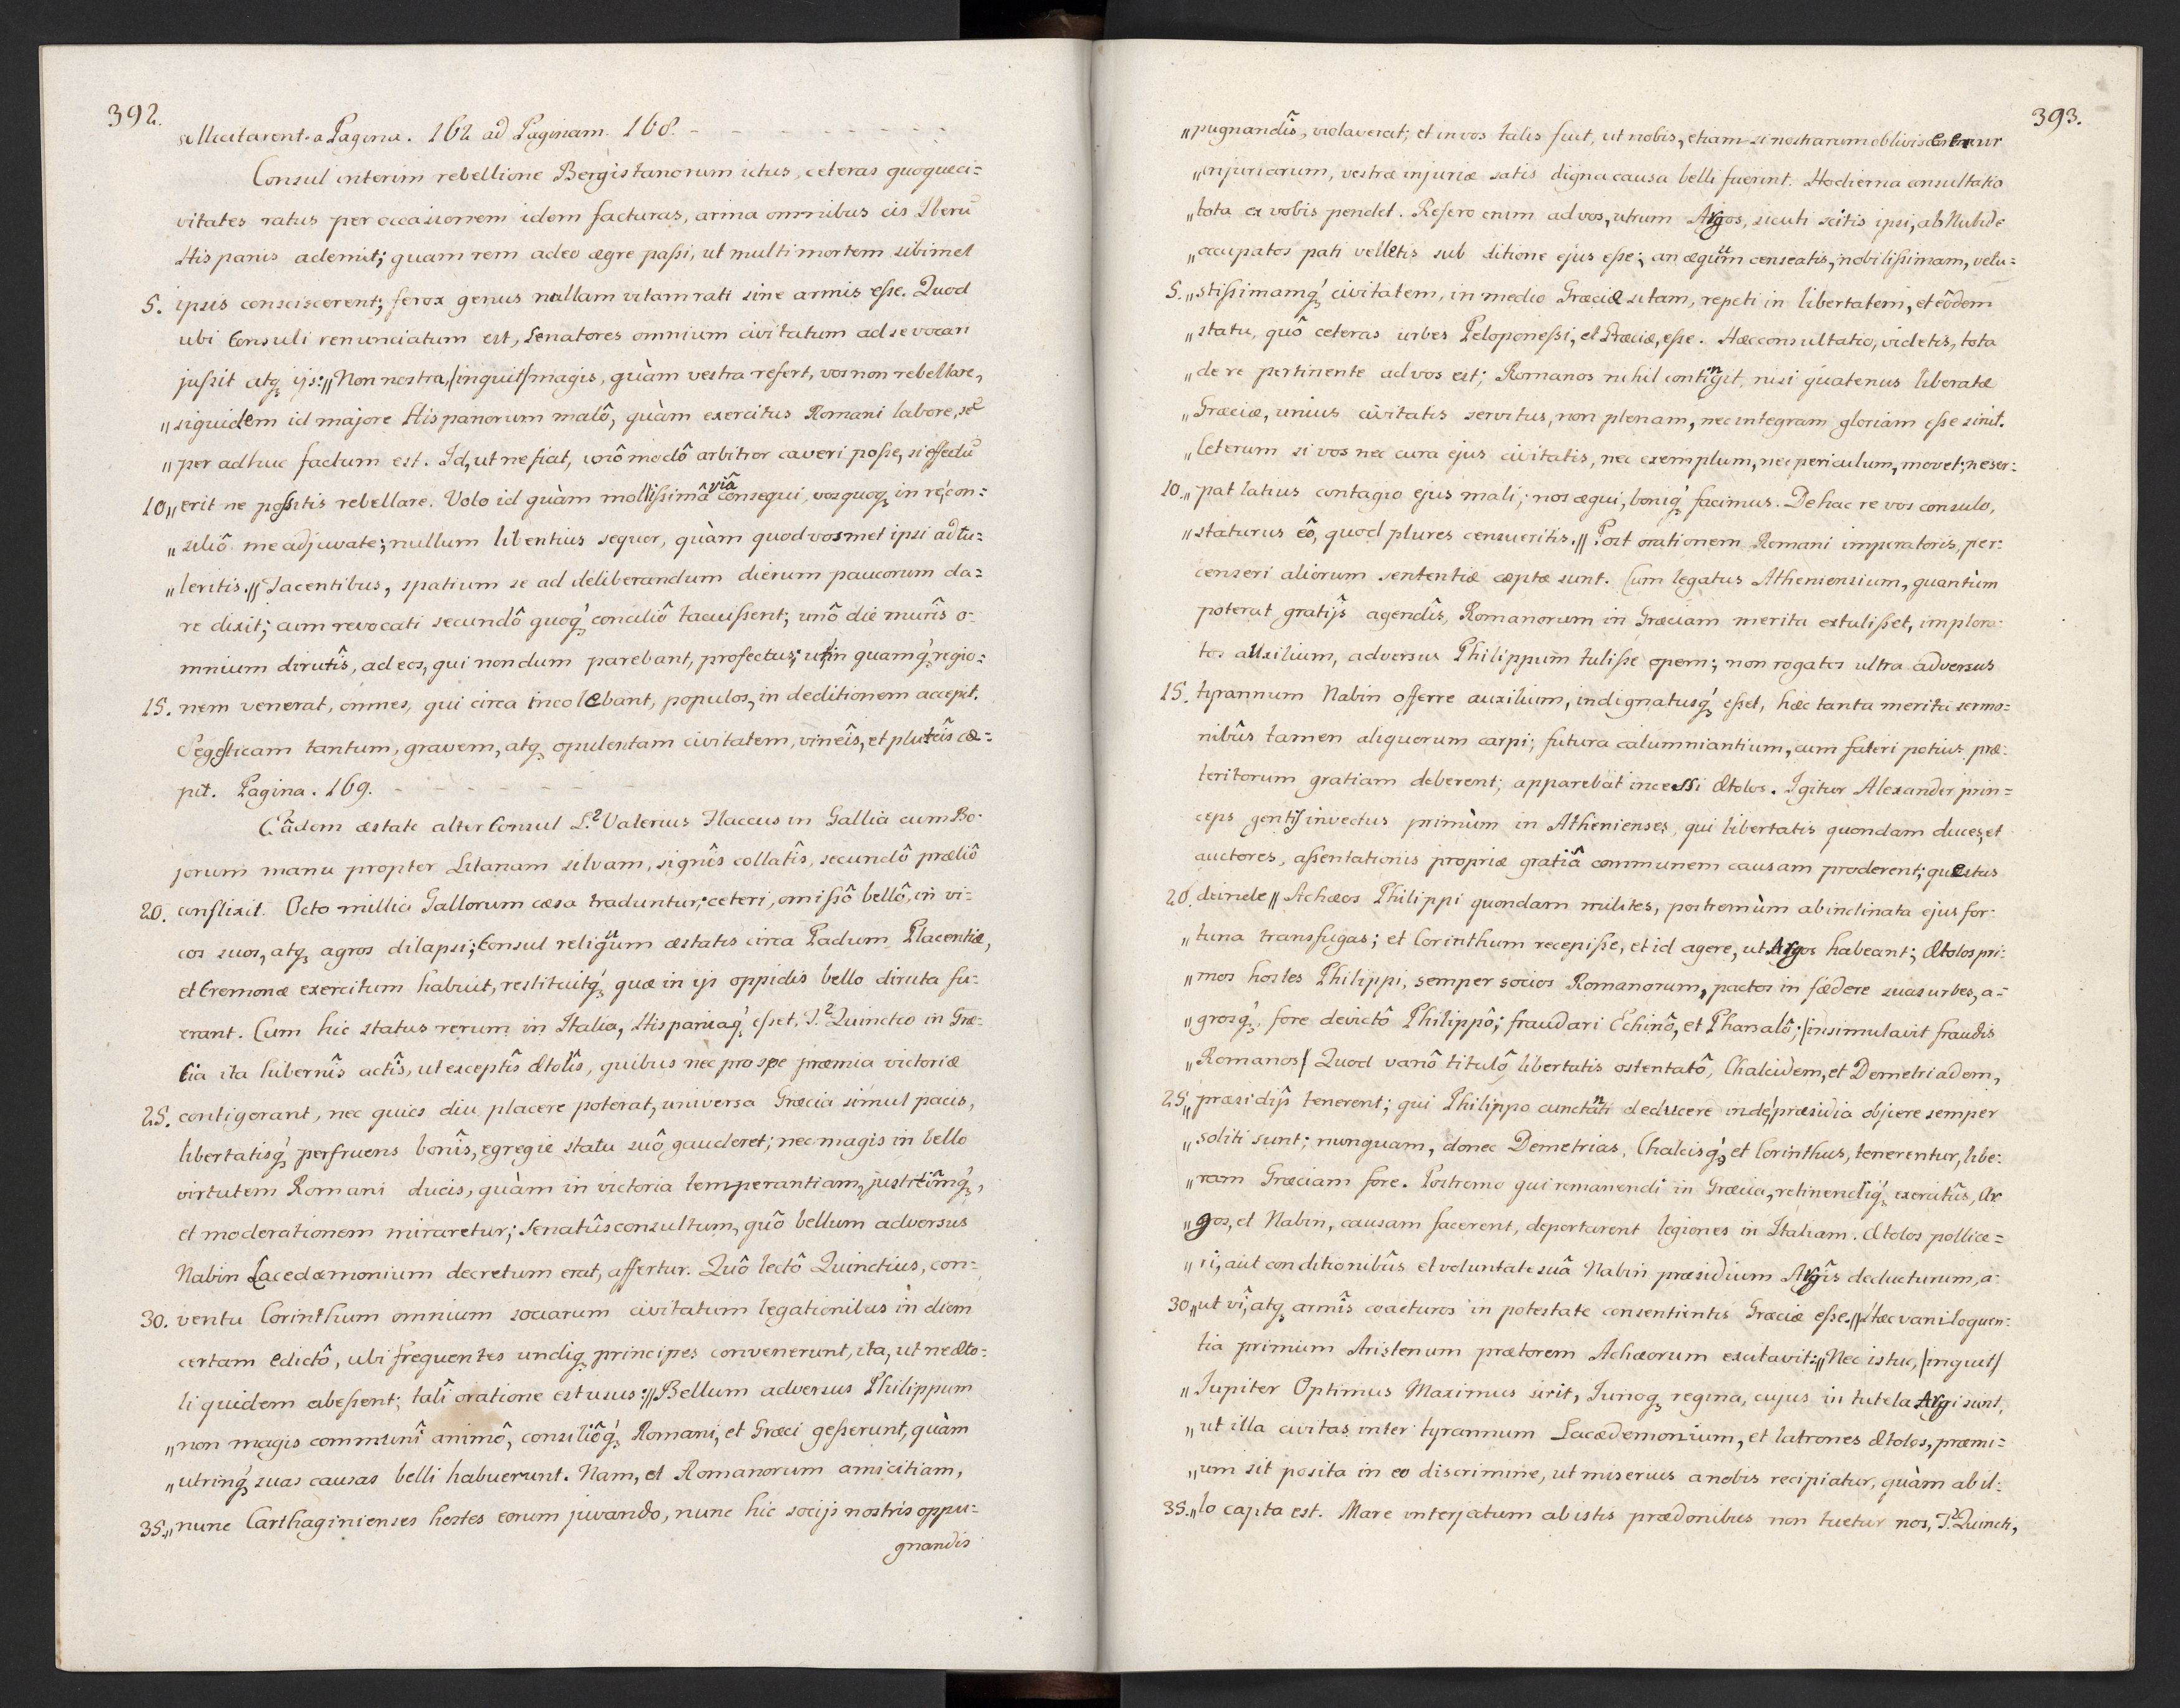 392.
sollicitarent. a Pagina. 162 ad Paginam. 168. - - - - - - - - -
Consul interim rebellione Bergistanorum ictus, ceteras quoque ci=
vitates ratus per occasionem idem facturas, arma omnibus cis Iberū
Hispanis ademit; quam rem adeo ægre paſsi, ut multi mortem sibimet
5. ipsis consciscerent; ferox genus nullam vitam rati sine armis eſse. Quod
ubi Consuli renunciatum est, Senatores omnium civitatum ad se vocari
juſsit atq̨ ijs: „Non nostra, /inquit/ magis, quàm vestra refert, vos non rebellare,
„siquidem id majore Hispanorum malô, quàm exercitus Romani labore, se=
„per adhuc factum est. Id, ut ne fiat, unô modô arbitror caveri poſse, si effectū
10. „erit ne poſsitis rebellare. Volo id quàm molliſsimâ viâ consequi, vos quoq̨ in re, con=
„siliô me adjuvate; nullum libentius sequor, quàm quod vosmet ipsi attu=
„leritis.„ Tacentibus, spatium se ad deliberandum dierum paucorum da=
re dixit; cum revocati secundô quoq̨́ conciliô tacuiſsent; unô die murîs o=
mnium dirutîs, ad eos, qui nondum parebant, profectus; ut in quamq̨́ regio=
15. nem venerat, omnes, qui circa incolebant, populos, in deditionem accepit.
Segesticam tantum, gravem, atq̨ opulentam civitatem, vineîs, et pluteîs cæ=
pit. Pagina. 169. - - - - - -
Eâdem æstate alter Consul L.² Valerius Flaccus in Gallia cum Bo=
jorum manu propter Litanam silvam, signîs collatîs, secundô præliô
20. conflixit. Octo millia Gallorum cæsa traduntur; ceteri, omiſsô bellô, in vi=
cos suos, atq̨ agros dilapsi; Consul reliquum æstatis circa Padum Placentiæ,
et Cremonæ exercitum habuit, restituitq̨́ quæ in ijs oppidis bello diruta fu=
erant. Cum hic status rerum in Italia, Hispaniaq̨́ eſset, T.² Quinctio in Græ=
cia ita hibernîs actîs, ut exceptîs Ætolîs, quibus nec pro spe præmia victoriæ
25. contigerant, nec quies diu placere poterat, universa Græcia simul pacis,
libertatisq̨́ perfruens bonîs, egregie statu suô gauderet; nec magis in bello
virtutem Romani ducis, quàm in victoria temperantiam, justitiāmq̨́,
et moderationem miraretur; Senatûsconsultum, quô bellum adversus
Nabin Lacedæmonium decretum erat, affertur. Quô lectô Quinctius, con=
30. ventu Corinthum omnium sociarum civitatum legationibus in diem
certam edictô, ubi frequentes undiq̨ principes convenerunt, ita, ut ne Æto=
li quidem abeſsent; talî oratione est usus: „Bellum adversus Philippum
„non magis communî animô, consiliôq̨́ Romani, et Græci geſserunt, quàm
„utrinq̨́ suas causas belli habuerunt. Nam, et Romanorum amicitiam,
35. „nunc Carthaginienses hostes eorum juvando, nunc hic socijs nostris oppu=
gnandis
393.
„pugnandîs, violaverat; et in vos talis fuit, ut nobis, etiam si nostrarum oblivisceremur
„injuriarum, vestræ injuriæ satis digna causa belli fuerint. Hodierna consultatio
„tota ex vobis pendet. Refero enim ad vos, utrum Argos, sicuti scitis ipsi, ab Nabide
„occupatos pati velletis sub ditione ejus eſse; an æquum censeatis, nobiliſsimam, vetu=
5. „stiſsimamq̨́ civitatem, in medio Græciæ sitam, repeti in libertatem, et eôdem
„statu, quô ceteras urbes Peloponeſsi, et Græciæ, eſse. Hæc consultatio, videtis, tota
„de re pertinente ad vos est; Romanos nihil contingit, nisi quatenus liberatæ
„Græciæ, unius civitatis servitus, non plenam, nec integram gloriam eſse sinit.
„Ceterum si vos nec cura ejus civitatis, nec exemplum, nec periculum, movet; ne ser=
10. „pat latius contagio ejus mali; nos æqui, boniq̨́ facimus. De hac re vos consulo,
„staturus eô, quod plures censueritis.„ Post orationem Romani imperatoris, per=
censeri aliorum sententiæ cæptæ sunt. Cum legatus Atheniensium, quantùm
poterat gratijs agendîs, Romanorum in Græciam merita extuliſset, implora=
tos auxilium, adversus Philippum tuliſse opem; non rogatos ultra adversus
15. tyrannum Nabin offerre auxilium, indignatusq̨́ eſset, hæc tanta merita sermo=
nibûs tamen aliquorum carpi; futura calumniantium, cum fateri potius præ=
teritorum gratiam deberent; apparebat inceſsi Ætolos. Igitur Alexander prin=
ceps gentis invectus primùm in Athenienses, qui libertatis quondam duces, et
auctores, aſsentationis propriæ gratiâ communem causam proderent; questus
20. deinde „Achæos Philippi quondam milites, postremùm ab inclinata ejus for=
„tuna transfugas; et Corinthum recepiſse, et id agere, ut Argos habeant; Ætolos pri=
„mos hostes Philippi, semper socios Romanorum, pactos in fœdere suas urbes, a=
„grosq̨́ fore devictô Philippô; fraudari Echinô, et Pharsalô; /insimulavit fraudis
„Romanos/ Quod vanô titulô libertatis ostentatô, Chalcidem, et Demetriadem,
25. „præsidijs tenerent; qui Philippo cunctanti deducere inde præsidia objicere semper
„soliti sunt; nunquam, donec Demetrias, Chalcisq̨́, et Corinthus, tenerentur, libe=
„ram Græciam fore. Postremo qui remanendi in Græcia, retinendiq̨́ exercitûs, Ar
„gos, et Nabin, causam facerent, deportarent legiones in Italiam. Ætolos pollice=
„ri, aut conditionibûs et voluntate suâ Nabin præsidium Argîs deducturum, a=
30. „ut vi, atq̨ armîs coacturos in potestate consentientis Græciæ eſse.„ Hæc vaniloquen=
tia primùm Aristenum prætorem Achæorum excitavit: „Nec istuc, /inquit/
„Jupiter Optimus Maximus sirit, Junoq̨ regina, cujus in tutela Argi sunt,
„ut illa civitas inter tyrannum Lacædemonium, et latrones Ætolos, præmi=
„um sit posita in eo discrimine, ut miserius a nobis recipiatur, quàm ab il=
35. „lo capta est. Mare interjectum ab istis prædonibus non tuetur nos, T.² Quincti,